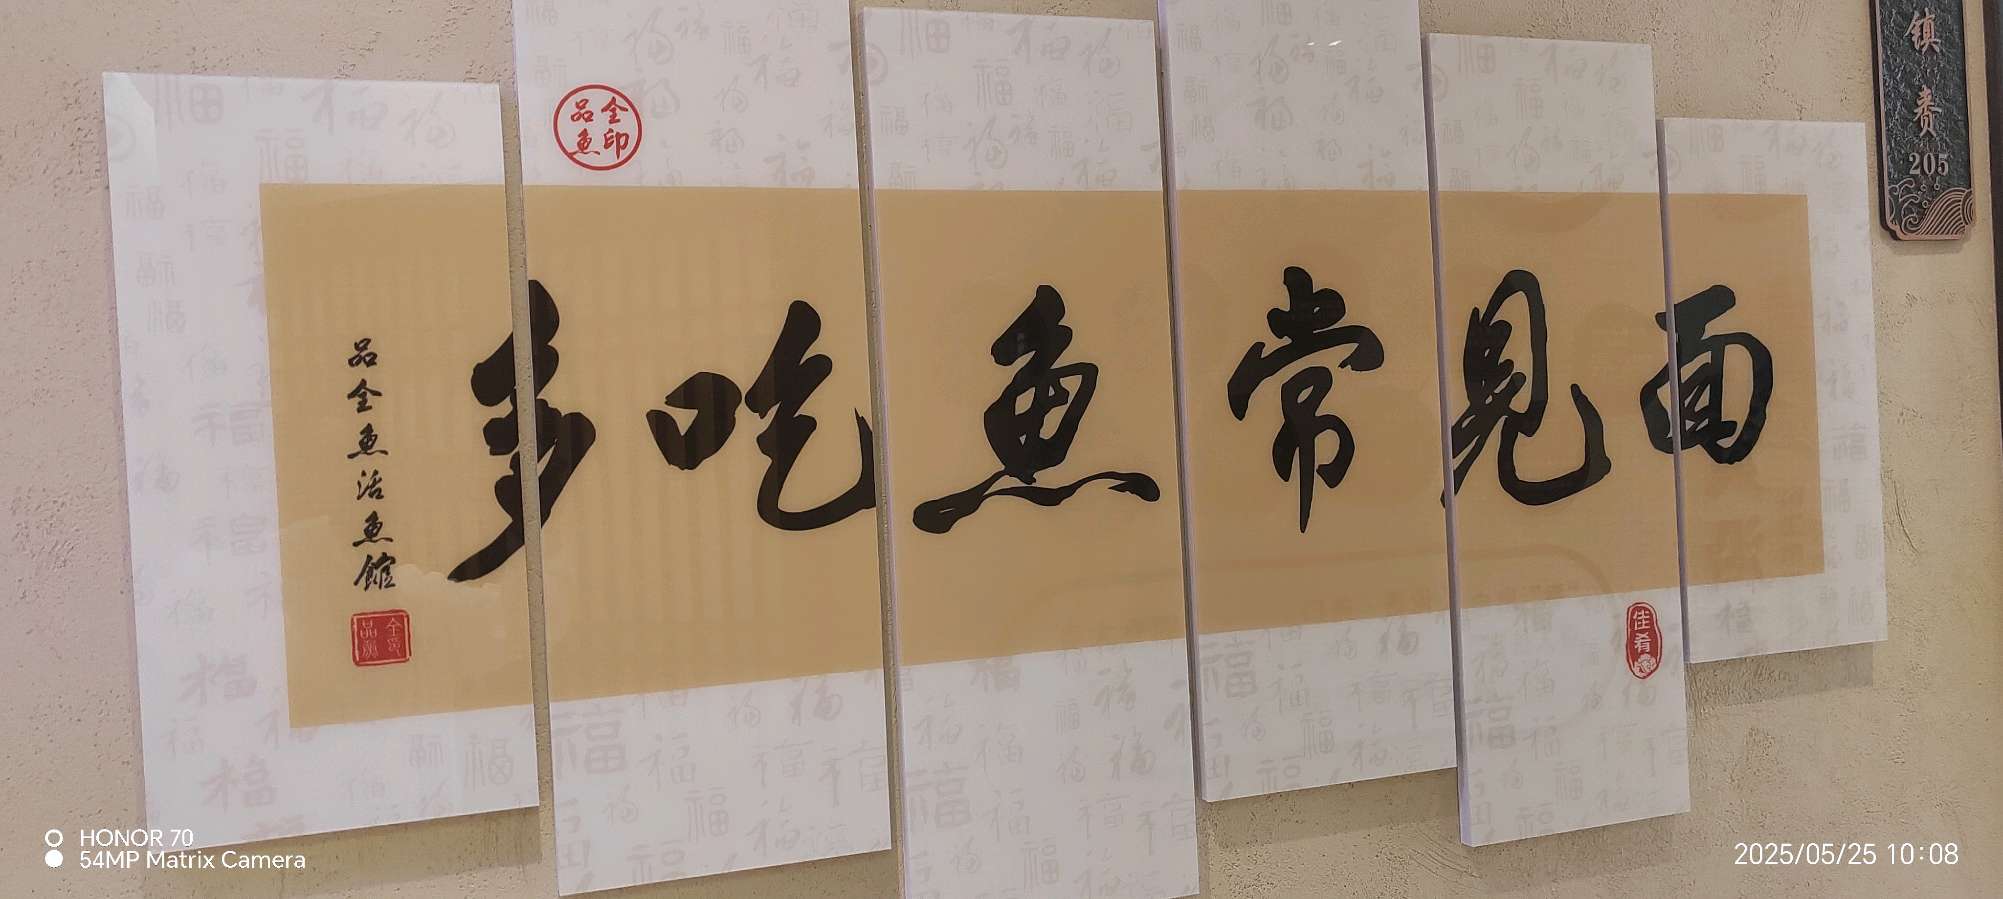 全印
品鱼
多吃鱼常见面
品全鱼活鱼館
佳肴
镇赉
205
HONOR 70
54MP Matrix Camera
2025/05/25 10:08